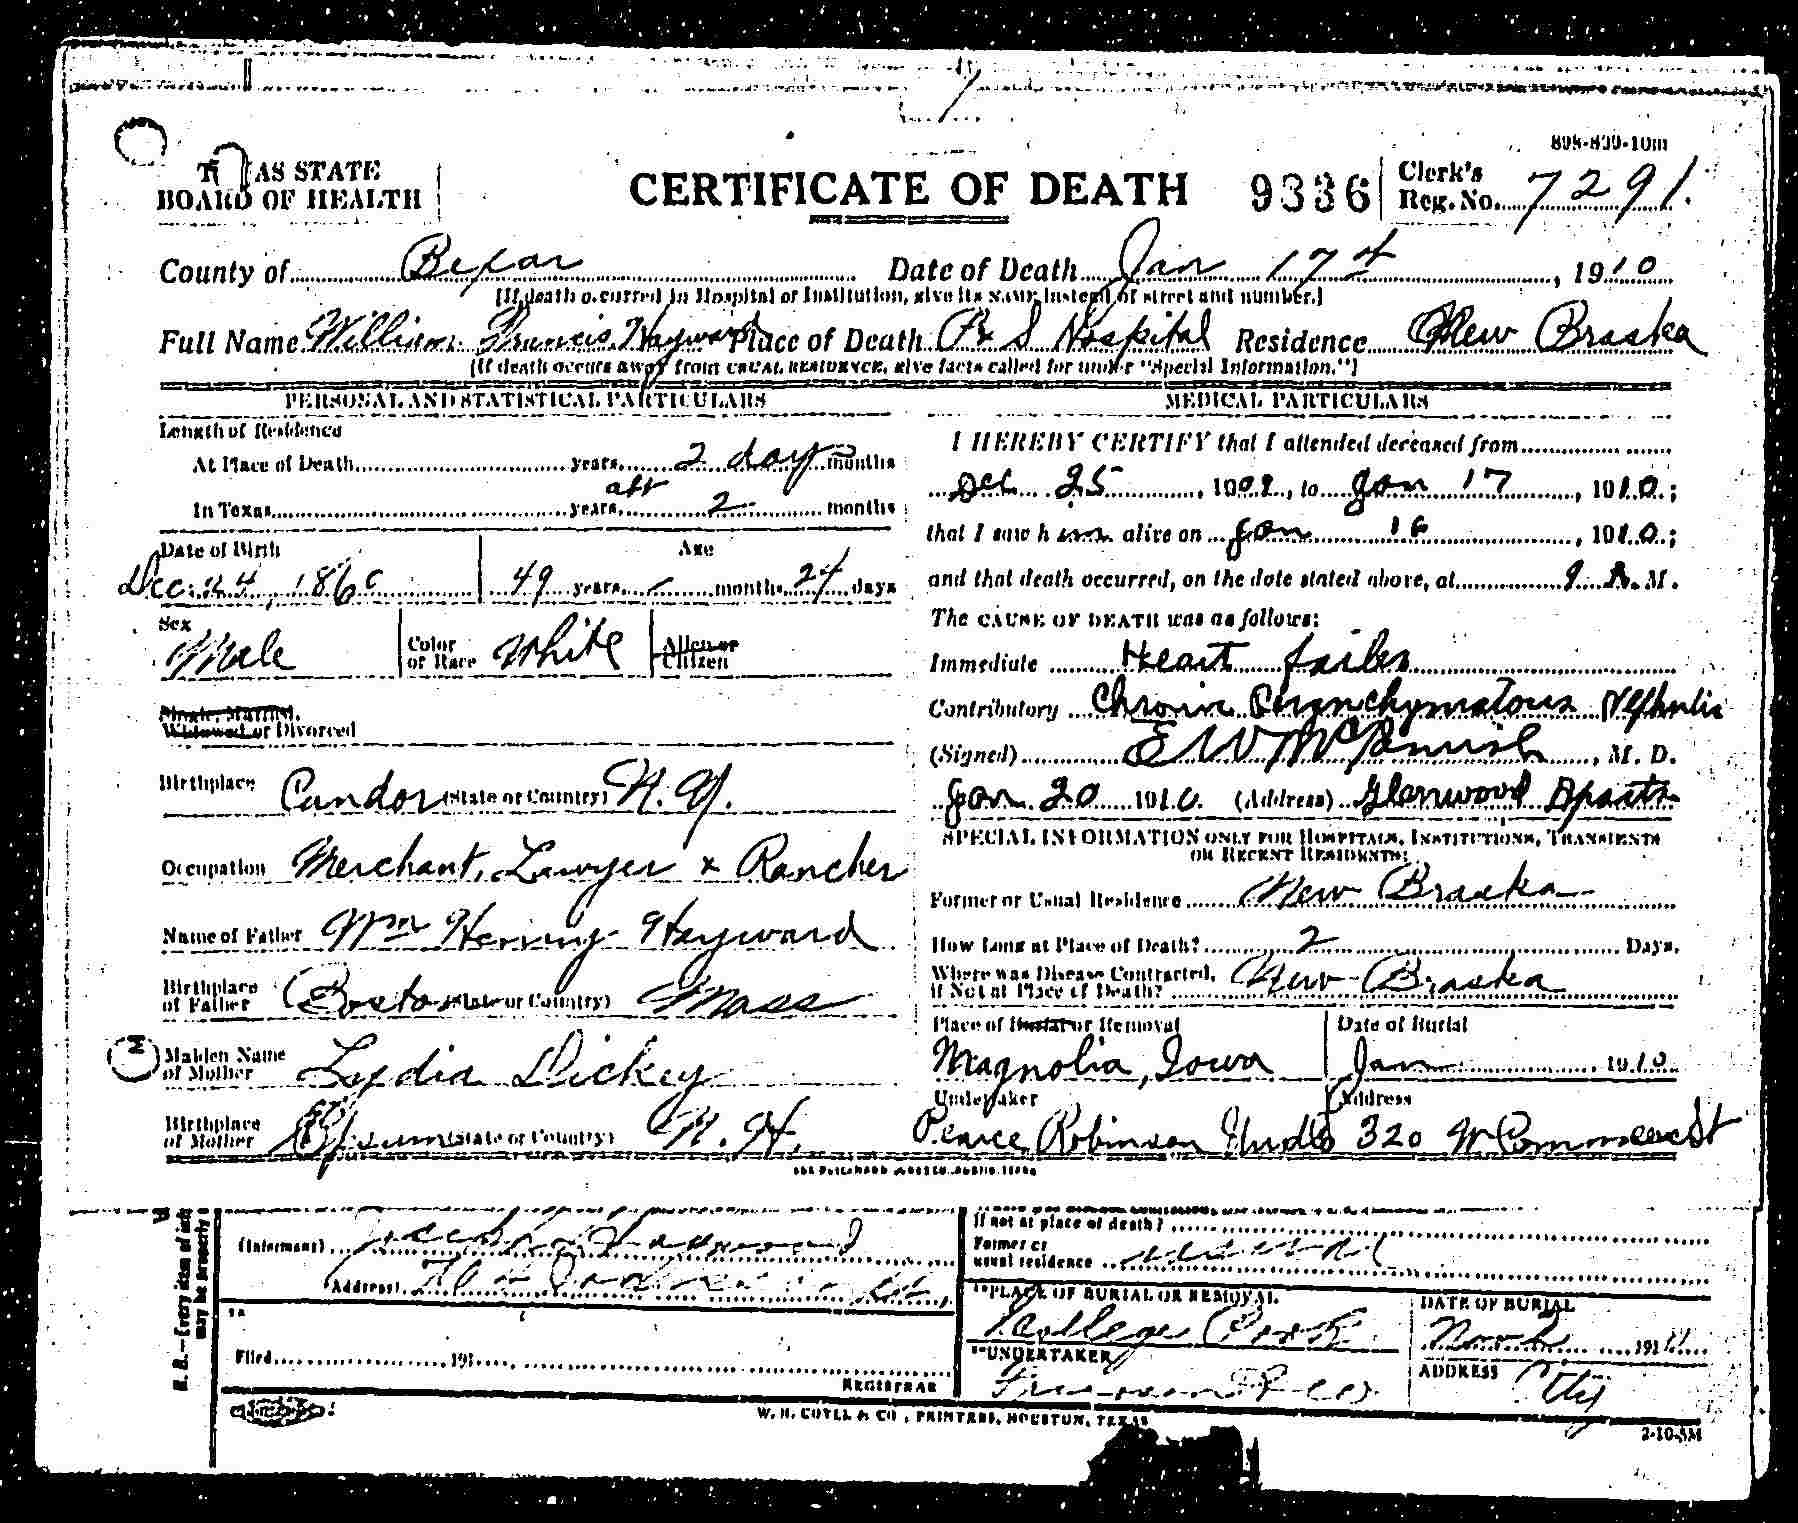 898-809-10m
TEXAS STATE
BOARD OF HEALTH
CERTIFICATE OF DEATH 9336 Clerk's Reg. No. 7291.
County of Bexar Date of Death Jan 17th, 1910
[If death occurred in Hospital or Institution, give its NAME instead of street and number.]
Full Name William Francis Hayward Place of Death P & S Hospital Residence New Braska
[If death occurs away from USUAL RESIDENCE, give facts called for under "Special Information."]
PERSONAL AND STATISTICAL PARTICULARS
Length of Residence
At Place of Death years 2 days months
In Texas years abt 2 months
Date of Birth Age
Dec. 24, 1860 49 years - months 24 days
Sex Male Color or Race White Alien or Citizen
Single, Married,
Widowed or Divorced
Birthplace Candor (State or Country) N.Y.
Occupation Merchant, Lawyer & Rancher
Name of Father Wm Henry Hayward
Birthplace of Father Boston (State or Country) Mass
Maiden Name of Mother Lydia Dickey
Birthplace of Mother Epsum (State or Country) N.H.
MEDICAL PARTICULARS
I HEREBY CERTIFY that I attended deceased from
Dec 25, 1909, to Jan 17, 1910;
that I saw him alive on Jan 16, 1910;
and that death occurred, on the date stated above, at 9 A. M.
The CAUSE OF DEATH was as follows:
Immediate Heart failer
Contributory Chronic Parynchymatous Nephritis
(Signed) E W M, M. D.
Jan 20 1910 (Address) Glenwood Aparts
SPECIAL INFORMATION ONLY FOR HOSPITALS, INSTITUTIONS, TRANSIENTS
OR RECENT RESIDENTS:
Former or Usual Residence New Braska
How Long at Place of Death? 2 Days.
Where was Disease Contracted,
if Not at Place of Death? New Braska
Place of Burial or Removal Date of Burial
Magnolia, Iowa Jan 1910
Undertaker Address
Pearce Robinson 320 W Commerce St
N. B.—Every item of
may be properly
(Informant) Hayward
(Address) St,
Filed 191
REGISTRAR
If not at place of death?
Former or
usual residence
PLACE OF BURIAL OR REMOVAL DATE OF BURIAL
College Park Nov 2 191
UNDERTAKER ADDRESS
City
W. H. COYLE & CO., PRINTERS, HOUSTON, TEXAS
2-10-5M